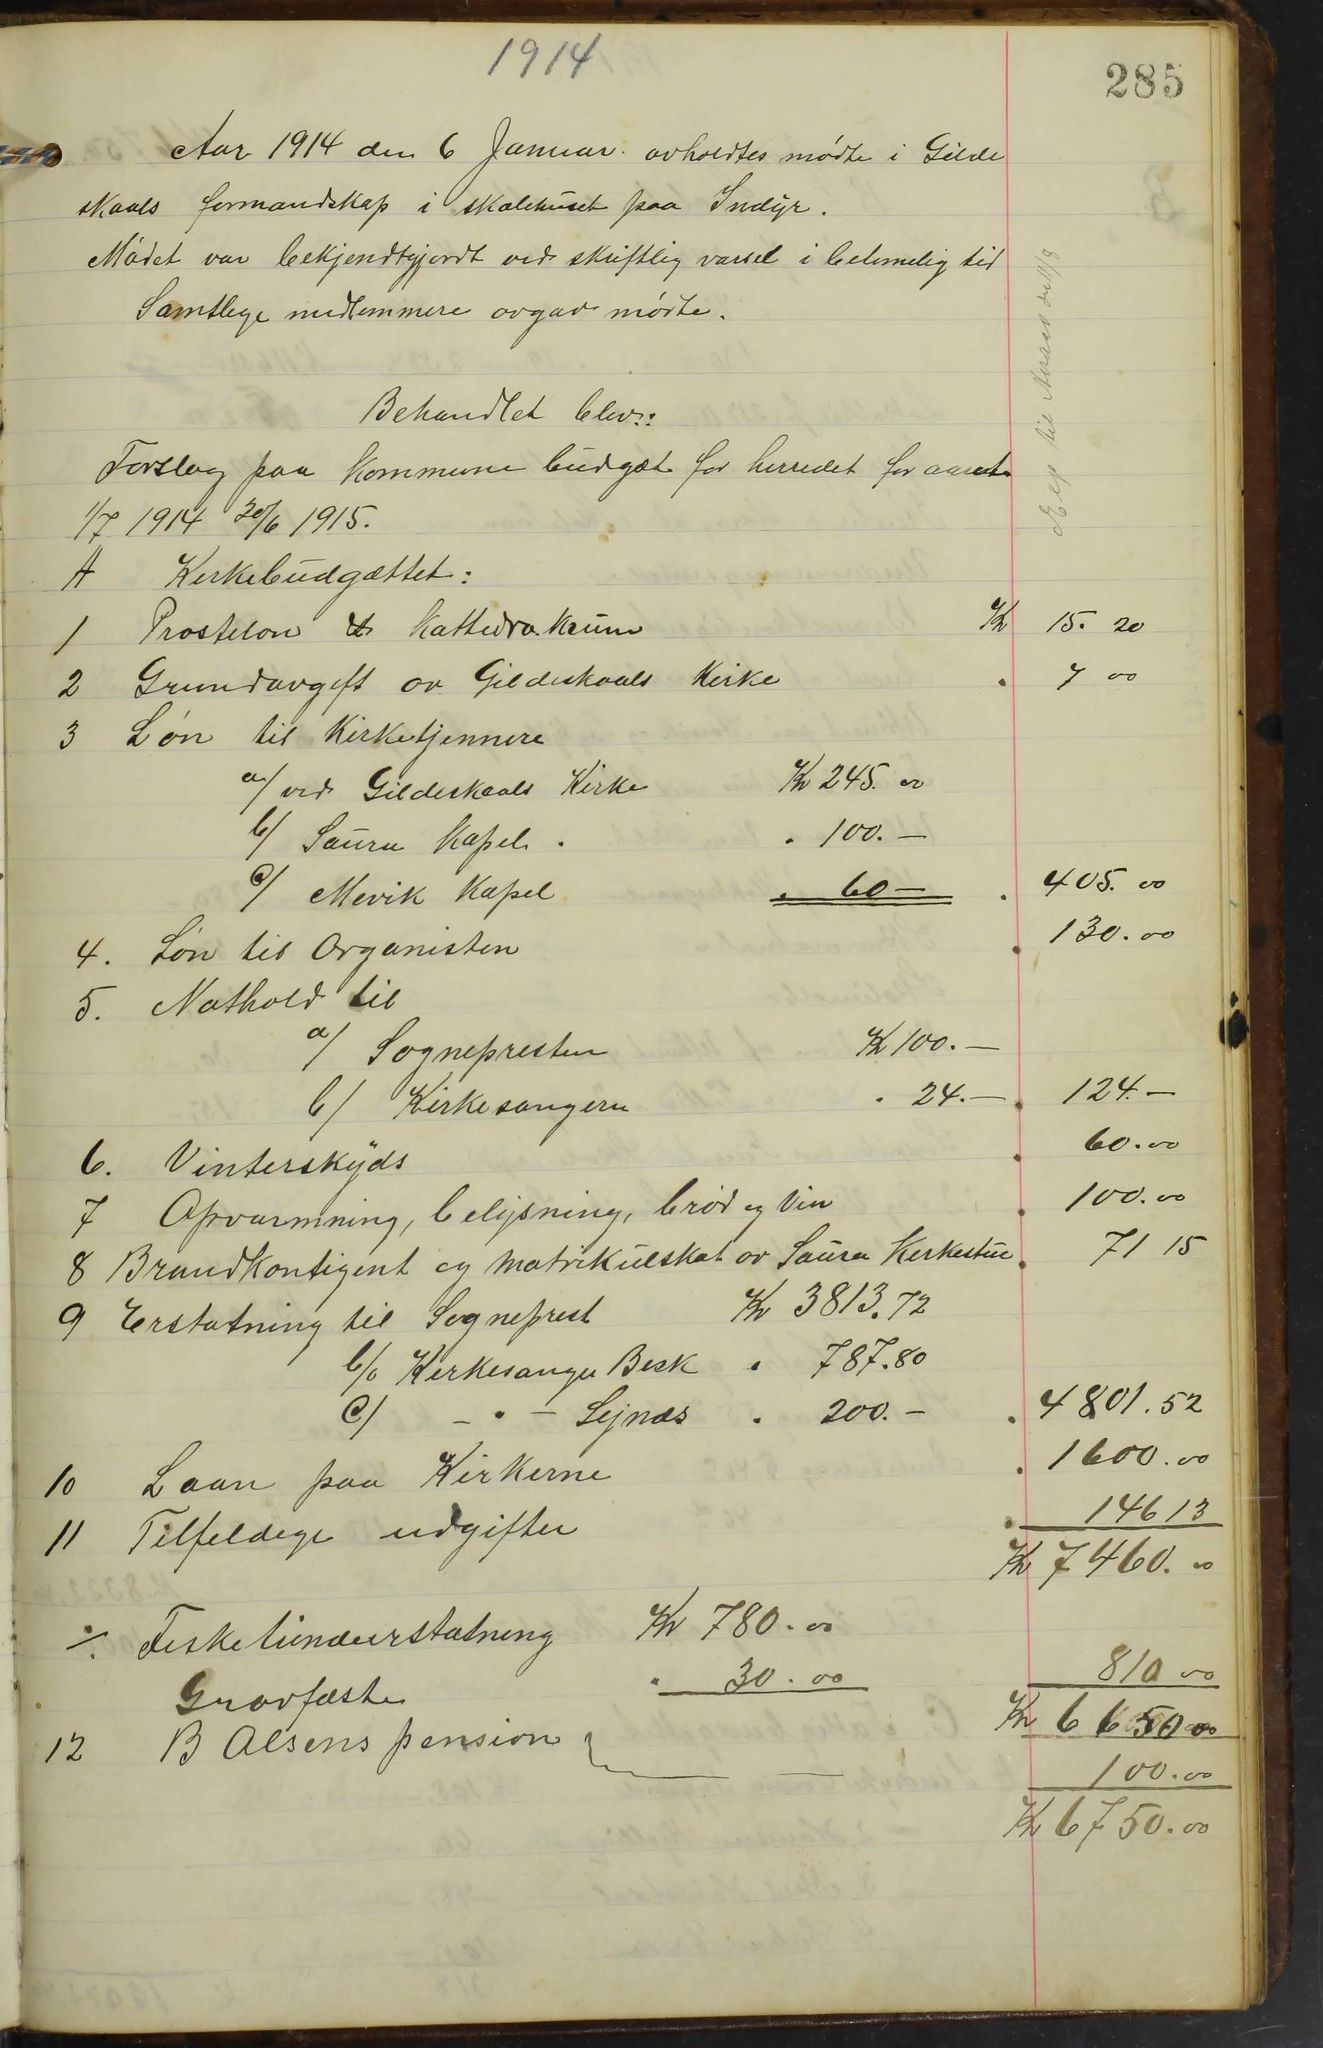 1914
285
Aar 1914 den 6 Januar. avholdtes møte i Gilde
skaals formandskap i skolehuset paa Indyr.
Mødet var bekjendtgjordt ved skriftlig varsel i betimelig tid
Samtlege medlemmere avgav møte.
Behandlet blev:
Forslag paa kommune budgæt for herredet for aaret
1/7 1914 30/6 1915.
A Kirkebudgættet:
1 Prostelon & Kattedratikum Kr 15. 20
2 Grundavgift av Gildeskaals Kirke " 7 00
3 Løn til Kirketjennere
a/ ved Gildeskaals Kirke Kr 245. 00
b/ Saura Kapel. " 100. —
c/ Mevik Kapel " 60 — " 405. 00
4. Løn til Organisten " 130. 00
5. Nathold til
a/ Sognepresten Kr 100. —
b/ Kirkesangern " 24. — " 124. —
6. Vinterskyds " 60. 00
7 Opvarmning, belysning, brød og Vin " 100. 00
8 Brandkontigent og matrikulskat av Saura Kirkestue " 71 15
9 Erstatning til Sogneprest Kr 3813. 72
b/ Kirkesanger Besk " 787. 80
c/ — " — Sejnæs " 200. — " 4801. 52
10 Laan paa Kirkerne " 1600. 00
11 Tilfeldige udgifter " 146 13
Kr 7460. 00
÷ Fisketiendeerstatning Kr 780. 00
Gravfæste " 30. 00 810 00
Kr 6650 00
12 B Olsens pension 100. 00
Kr 6750. 00